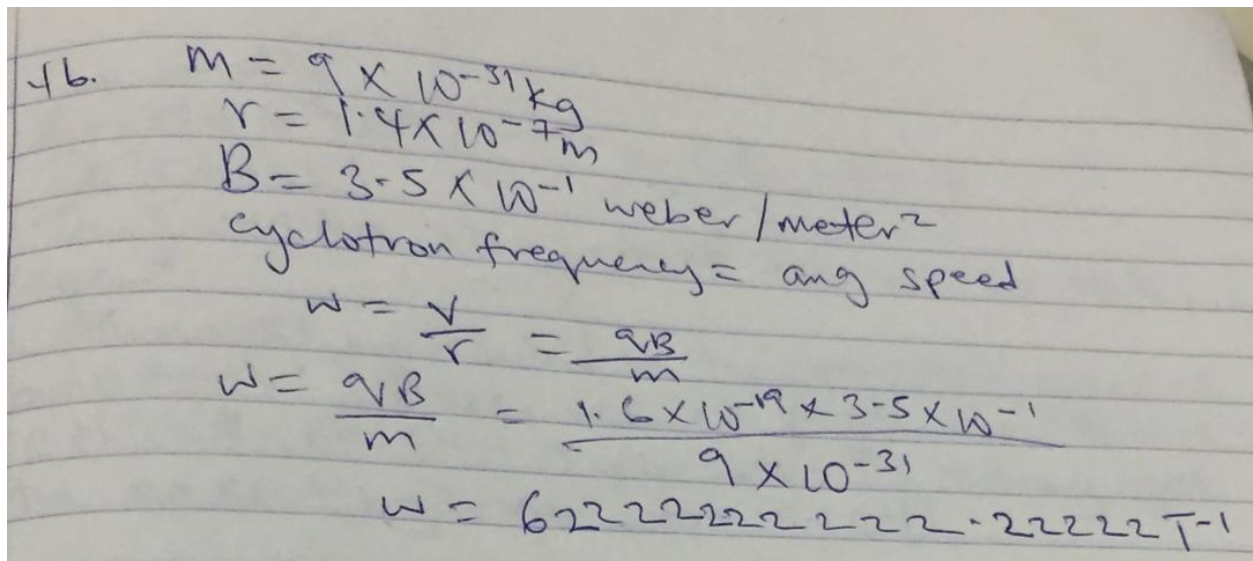 46. m = 9 × 10⁻³¹ kg
r = 1.4 × 10⁻⁷ m
B = 3.5 × 10⁻¹ weber/meter²
cyclotron frequency = ang speed
w = v/r = qB/m
w = qB/m = 1.6 × 10⁻¹⁹ × 3.5 × 10⁻¹ / 9 × 10⁻³¹
w = 62222222222.22222 T⁻¹